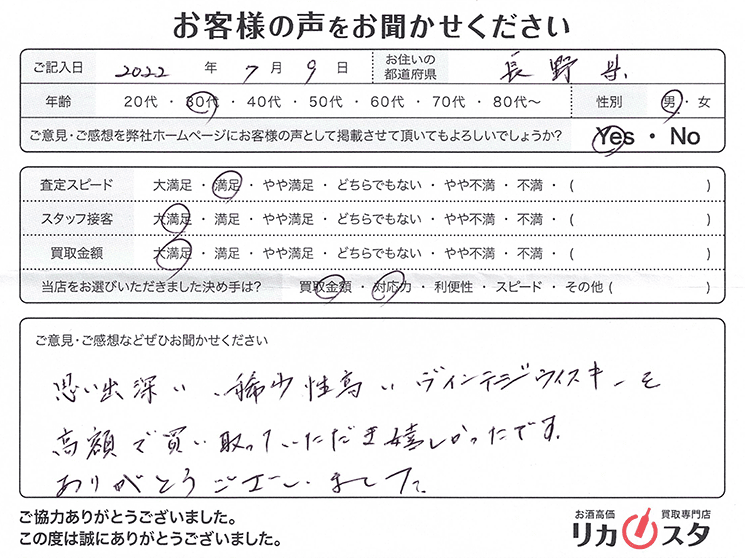 お客様の声をお聞かせください
ご記入日 2022 年 7 月 9 日 お住いの都道府県 長野県
年齢 20代・30代・40代・50代・60代・70代・80代〜 性別 男・女
ご意見・ご感想を弊社ホームページにお客様の声として掲載させて頂いてもよろしいでしょうか? Yes・No
査定スピード 大満足・満足・やや満足・どちらでもない・やや不満・不満・( )
スタッフ接客 大満足・満足・やや満足・どちらでもない・やや不満・不満・( )
買取金額 大満足・満足・やや満足・どちらでもない・やや不満・不満・( )
当店をお選びいただきました決め手は? 買取金額・対応力・利便性・スピード・その他( )
ご意見・ご感想などぜひお聞かせください
思い出深い、稀少性高いヴィンテージウイスキーを
高額で買い取っていただき嬉しかったです。
ありがとうございました。
ご協力ありがとうございました。
この度は誠にありがとうございました。
お酒高価 買取専門店
リカスタ